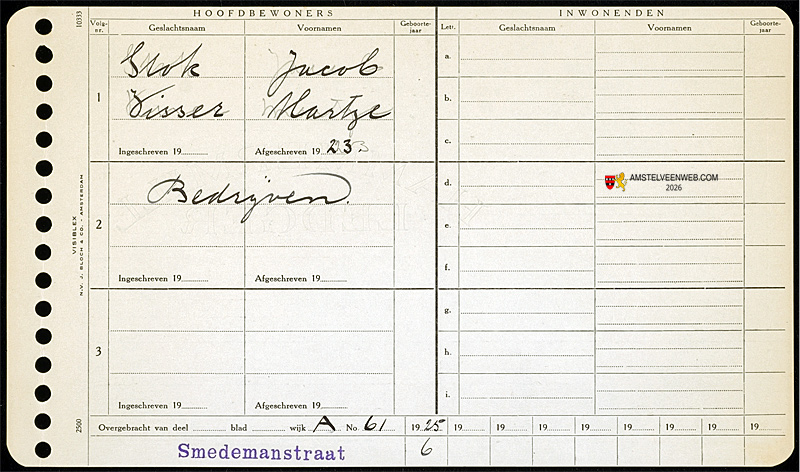 10333
HOOFDBEWONERS
INWONENDEN
Volg-nr.
Geslachtsnaam
Voornamen
Geboorte-jaar
Lett.
Geslachtsnaam
Voornamen
Geboorte-jaar
1
Stok Jacob
Visser Martje
Ingeschreven 19
Afgeschreven 19 23
a.
b.
c.
2
Bedrijven.
Ingeschreven 19
Afgeschreven 19
d.
e.
f.
AMSTELVEENWEB.COM
2026
3
Ingeschreven 19
Afgeschreven 19
g.
h.
i.
VISIBLEX
N.V. J. BLOCH & CO. - AMSTERDAM
2500
Overgebracht van deel blad wijk A No. 61 1925 19 19 19 19 19 19 19 19 19
Smedemanstraat 6